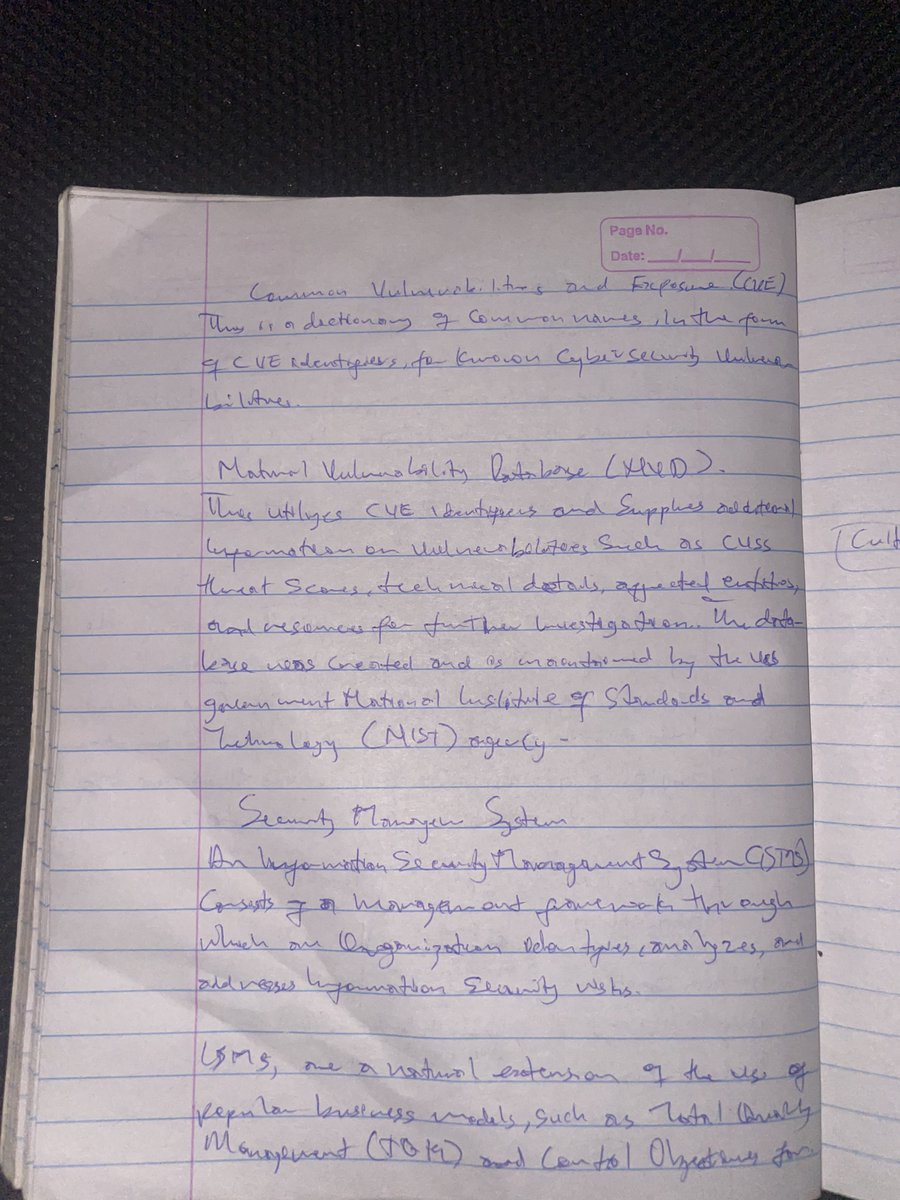 Page No.
Date: ___/___/___
Common Vulnerabilities and Exposure (CVE)
This is a dictionary of Common names, In the form
of CVE identifiers, for known Cybersecurity Vulnera
bilities.
National Vulnerability Database (NVD).
This utilizes CVE identifiers and Supplies additional
Information on Vulnerabilities Such as CVSS
threat Scores, technical details, affected entities,
and resources for further Investigation. The data-
base was created and is maintained by the
government National Institute of Standards and
Technology (NIST) agency -
Security System
An Information Security Management System (ISMS)
Consists of a Management framework through
which an Organization identifies, analyzes, and
addresses Information Security risks.
ISMS, are a natural extension of the use of
popular business models, such as Total Quality
Management and Control Objectives for
Cult